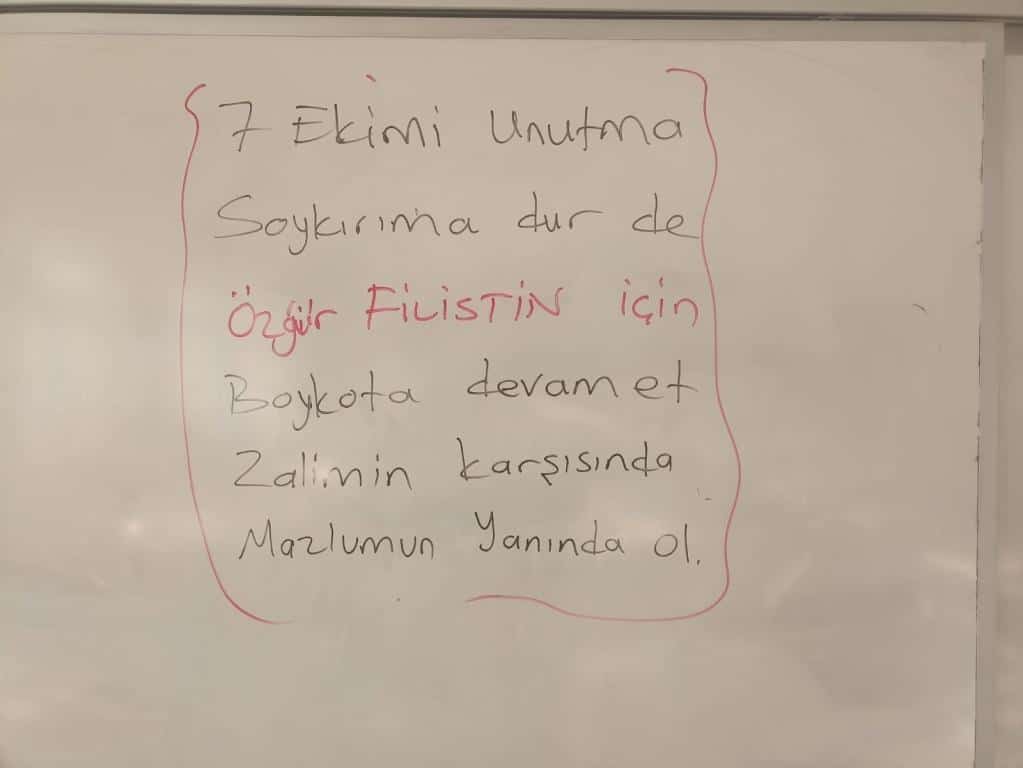 7 Ekimi Unutma
Soykırıma dur de
Özgür FİLİSTİN için
Boykota devam et
Zalimin karşısında
Mazlumun Yanında ol.